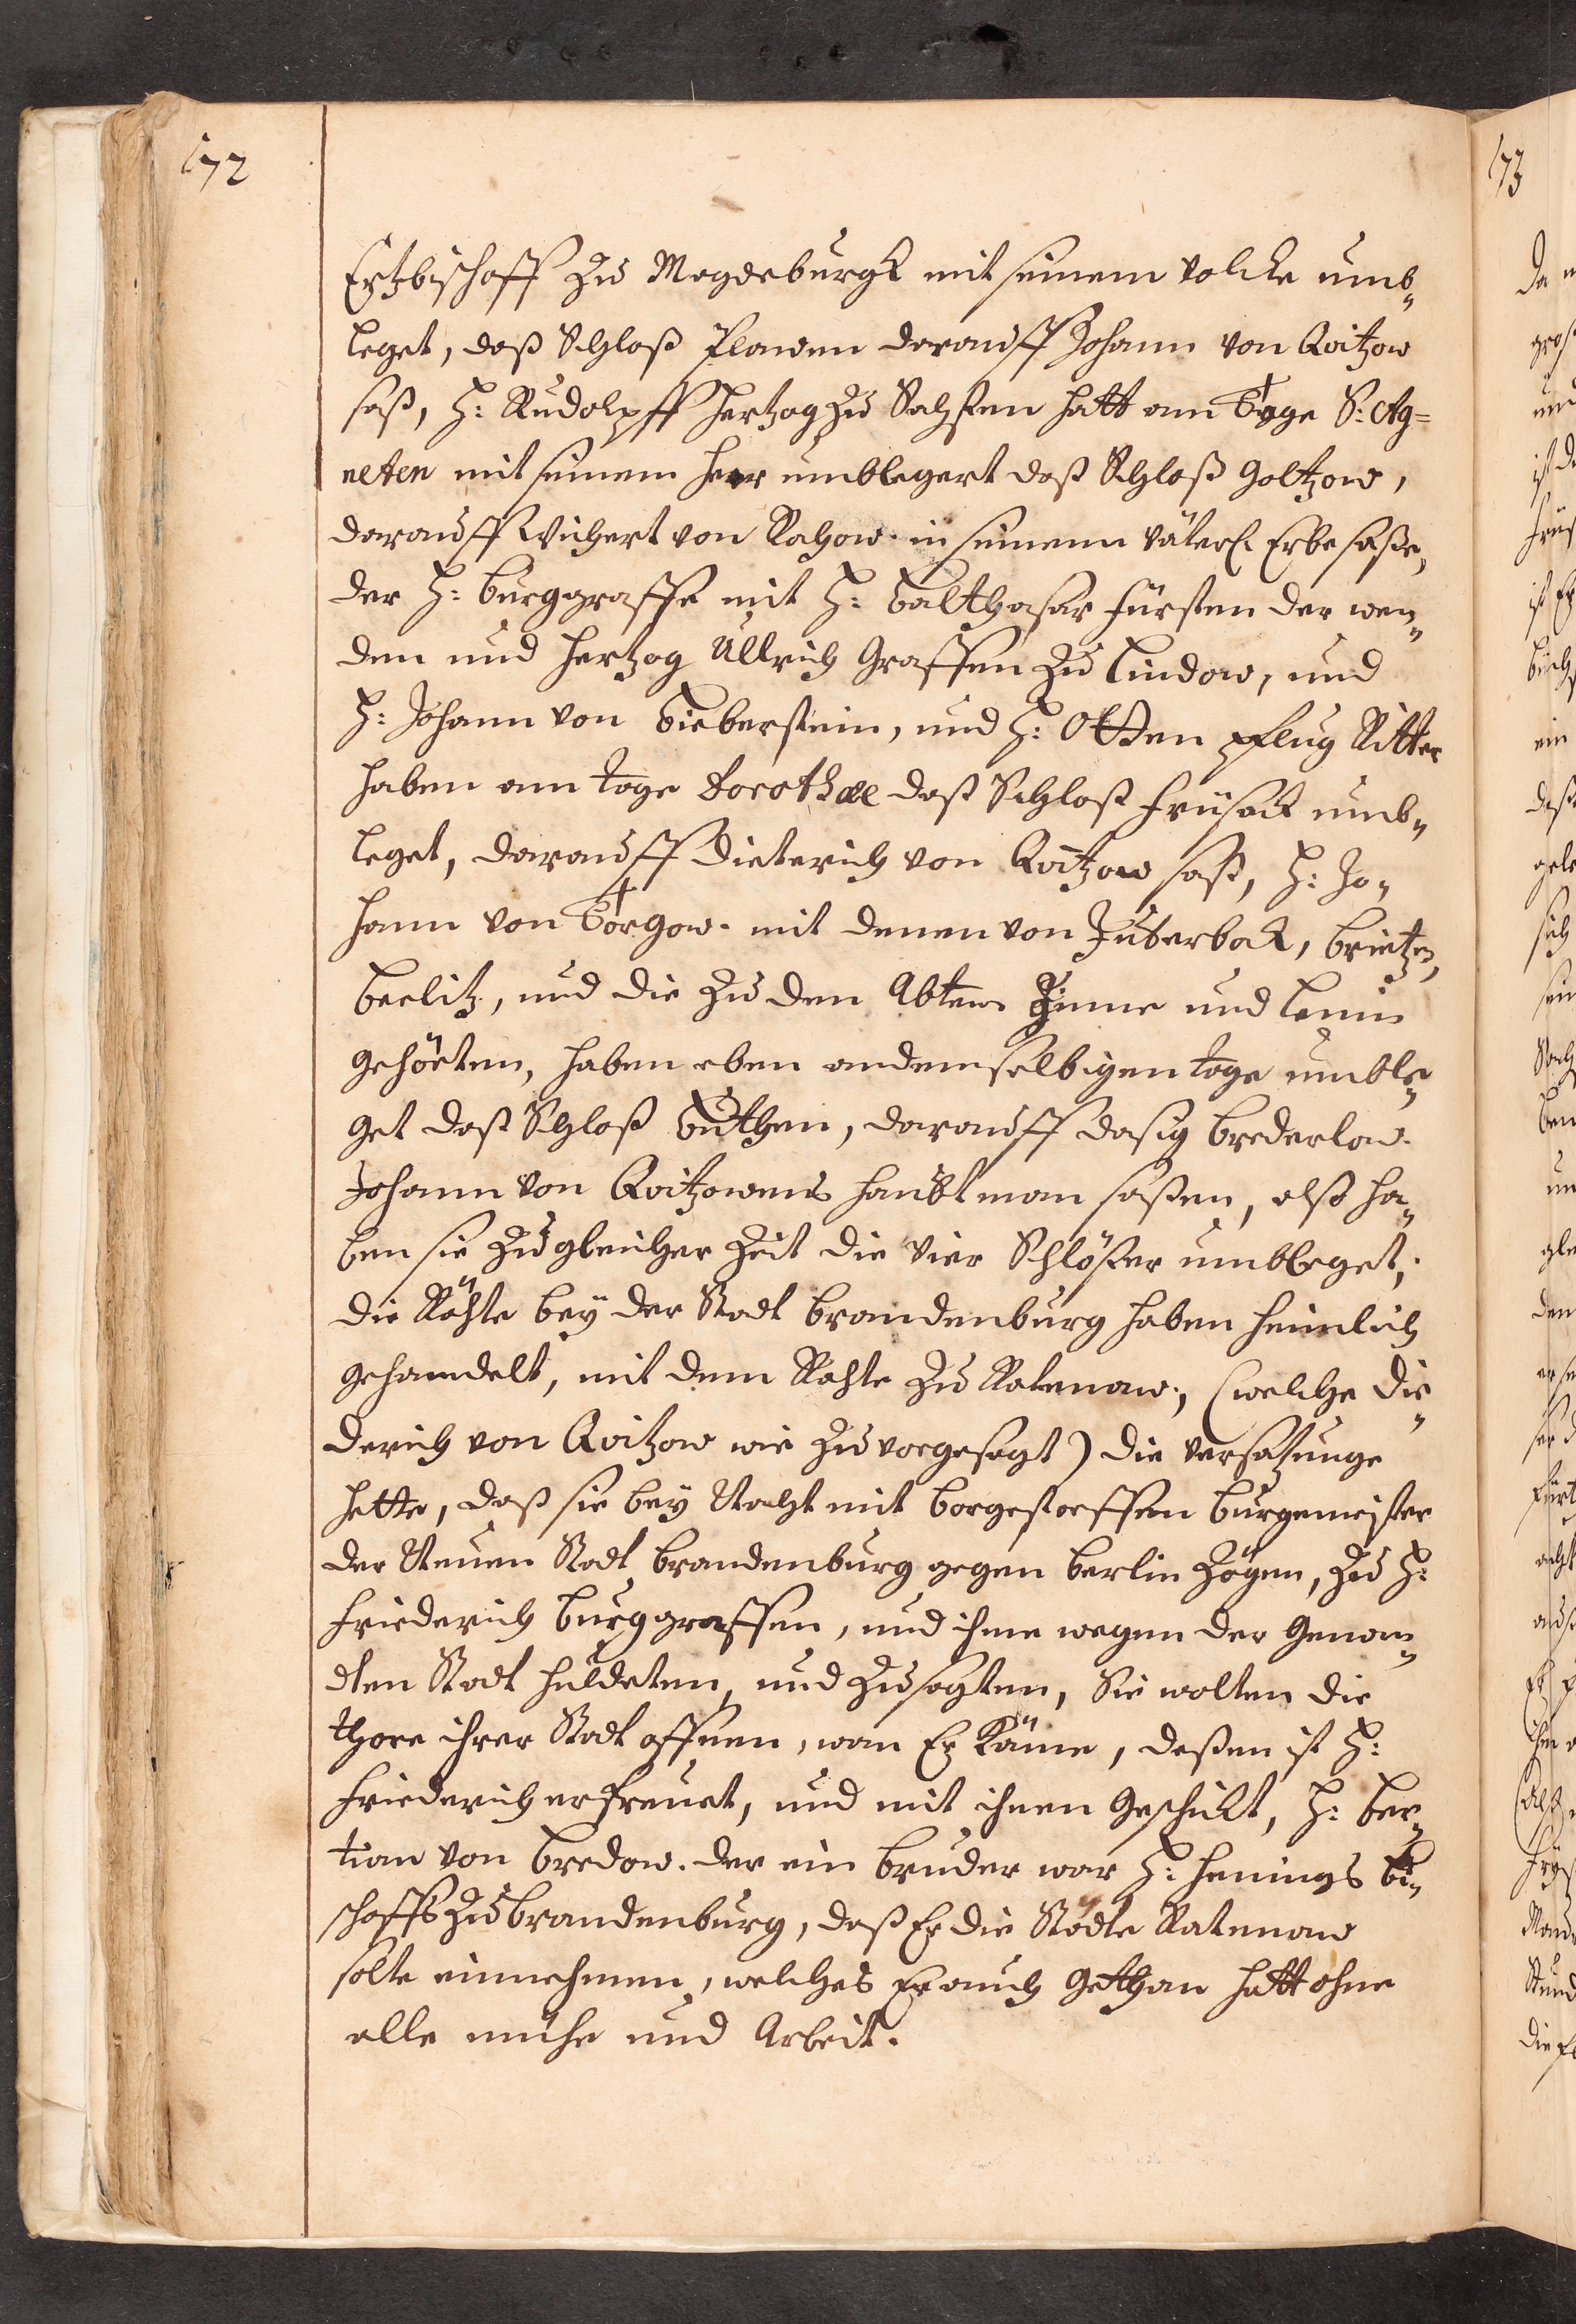 172
Ertzbischoff zu Magdeburgk mit seinem volcke umb„
leget, daß Schloß Plawen darauff Johann von Qvitzow
saß, H: Rudolpff Hertzog zu Sachßen hatt am Tage S: Ag=
neten mit seinem Heer umblegert daß Schloß Goltzow,
darauff Wichert von Rochow in seinem väterl. Erbe saße,
der H: Burggraffe mit H: Balthasar Fürsten der wen„
den und Hertzog Ullrich Graffen zu Lindow, und
H: Johann von Bieberstein, und H: Otten Pflug Ritter
haben am tage Dorothææ daß Schloß Frisack umb„
leget, darauff Dieterich von Qvitzow saß, H: Jo„
hann von Torgow mit denen von Jüterbock, Brietzen,
Beelitz, und die zu den Abteien Zinne und Lenin
gehörten, haben eben andemselbigen tage umble„
get daß Schloß Büthen, darauff dasig Brederlow
Johann von Qvitzowens Haubtman saßen, alß ha„
ben sie zu gleicher Zeit die vier Schlößer umbleget,
die Rähte bey der Stadt Brandenburg haben heimlich
gehandelt, mit dem Rahte zu Ratenow, (welche Die„
derich von Qvitzow wie zu vorgesagt) die versatzunge
hette, daß sie bey Nacht mit Borgestoeffen Burgemeister
der Neuen Stadt Brandenburg gegen Berlin zögen, zu H:
Friederich Burggraffen, und ihme wegen der Genan„
dten Stadt huldeten, und zusagten, Sie wolten die
thore ihrer Stadt offnen, wan Er käme, deßen ist H:
Friederich erfreuet, und mit ihnen Geschickt, H: Ber„
tian von Bredow, der ein Bruder war H: Hennings Bi„
schoffs zu Brandenburg, daß Er die Städte Ratenow
solte einnehmen, welches Er auch Gethan hatt ohne
alle mühe und Arbeit.
173